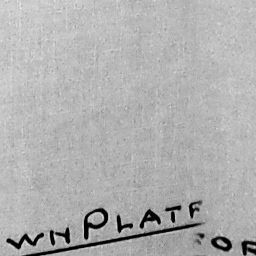 WNPLATF
:OR